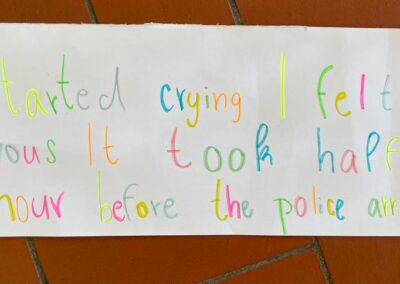 tarted crying I felt
vous It took half
hour before the police arr